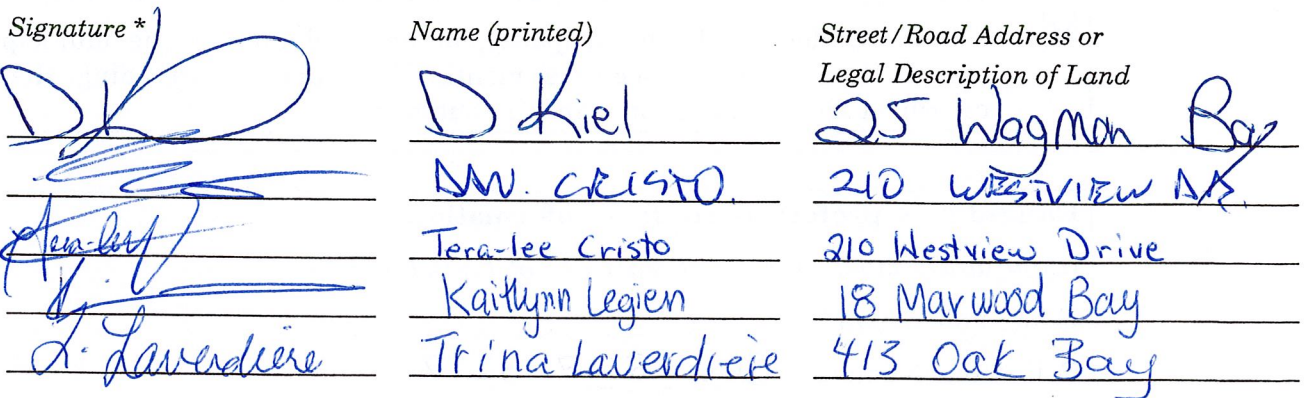 Signature * Name (printed) Street/Road Address or
Legal Description of Land
D Kiel 25 Wagmon Bay
D.W. CRISTO. 210 WESTVIEW DR.
Tera-lee Tera-lee Cristo 210 Westview Drive
Kaitlynn Legien 18 Marwood Bay
L. Laverdiere Trina Laverdiere 413 Oak Bay